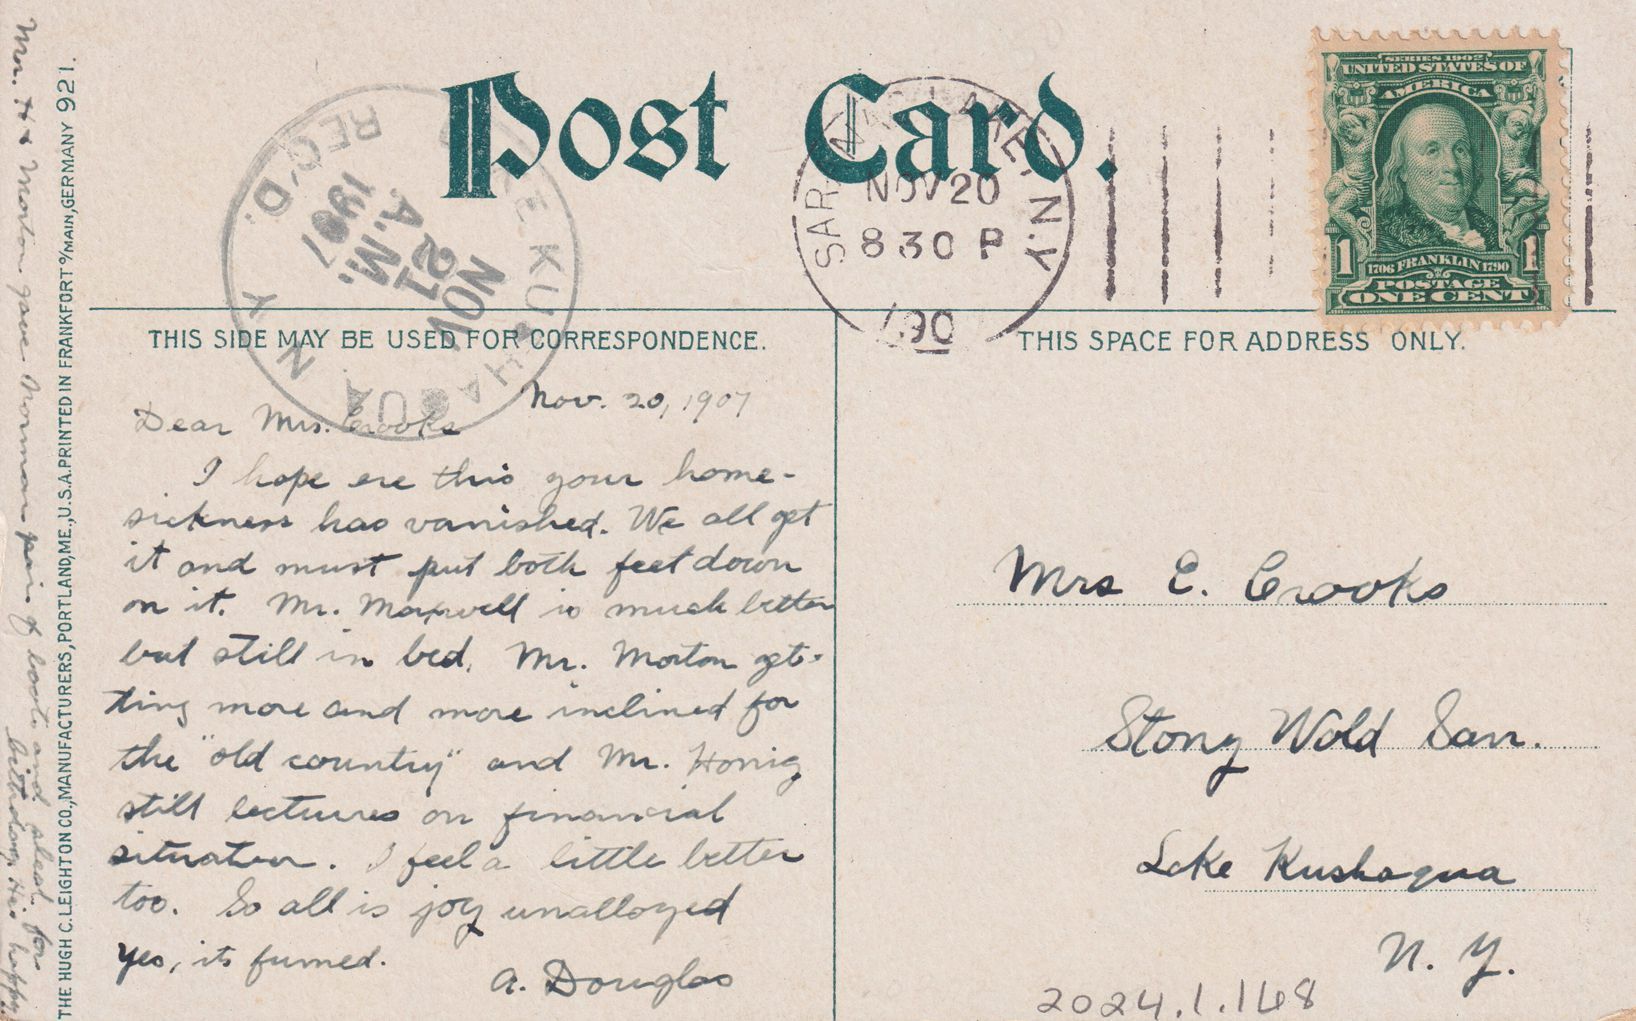 Post Card.
SARANAC LAKE N.Y.
NOV 20
8 30 P
190
LAKE KUSHAQUA N Y
NOV
21
A.M.
1907
REC'D.
SERIES 1902
UNITED STATES OF
AMERICA
1706 FRANKLIN 1790
1 1
POSTAGE
ONE CENT
THIS SIDE MAY BE USED FOR CORRESPONDENCE.
THIS SPACE FOR ADDRESS ONLY.
Nov. 20, 1907
Dear Mrs. Crooks
I hope ere this your home-
sickness has vanished. We all get
it and must put both feet down
on it. Mr. Maxwell is much better
but still in bed. Mr. Morton get-
ting more and more inclined for
the "old country" and Mr. Honig
still lectures on financial
situation. I feel a little better
too. So all is joy unalloyed
Yes, its fumed.
A. Douglas
Mrs E. Crooks
Stony Wold San.
Lake Kushaqua
N. Y.
2024.1.148
THE HUGH C. LEIGHTON CO., MANUFACTURERS, PORTLAND, ME., U.S.A. PRINTED IN FRANKFORT o/MAIN, GERMANY 921.
Mr. H & Morton gave Norman pair of boots and for
birthday. He's happy.